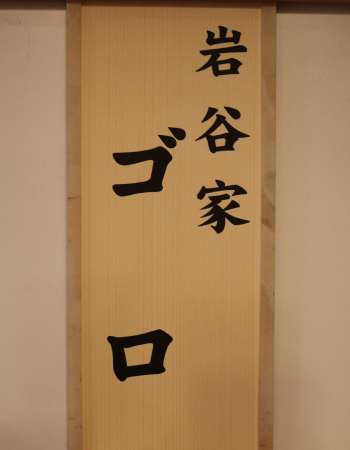 岩谷家
ゴロ